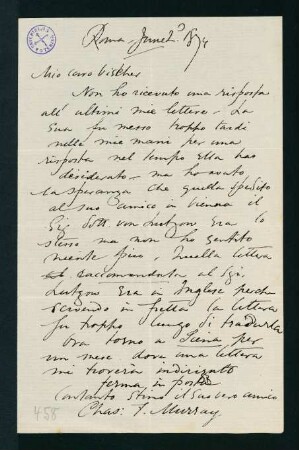 Roma June 2º 1874
Mio caro Vischer
Non ho ricevuto una risposta
all' ultimi mie lettere – La
Sua fu messo troppo tardi
nelle mie mani per una
risposta nel tempo Ella has
desiderato – ma ho avuto
la speranza che quella spedito
al suo amico in Vienna il
Sig. Dott. von Lutzow era lo
stesso ma non ho sentito
niente più. Quella lettera
raccomandata al Sig.
Lutzow era in Inglese perche
scrivendo in fretta la lettera
fu troppo lungo di tradurla
Ora torno a Siena per
un mese dove una lettera
mi troverà indirizzato
ferma in posta
Contanto stima il Suo vero amico
Chas: F. Murray
458